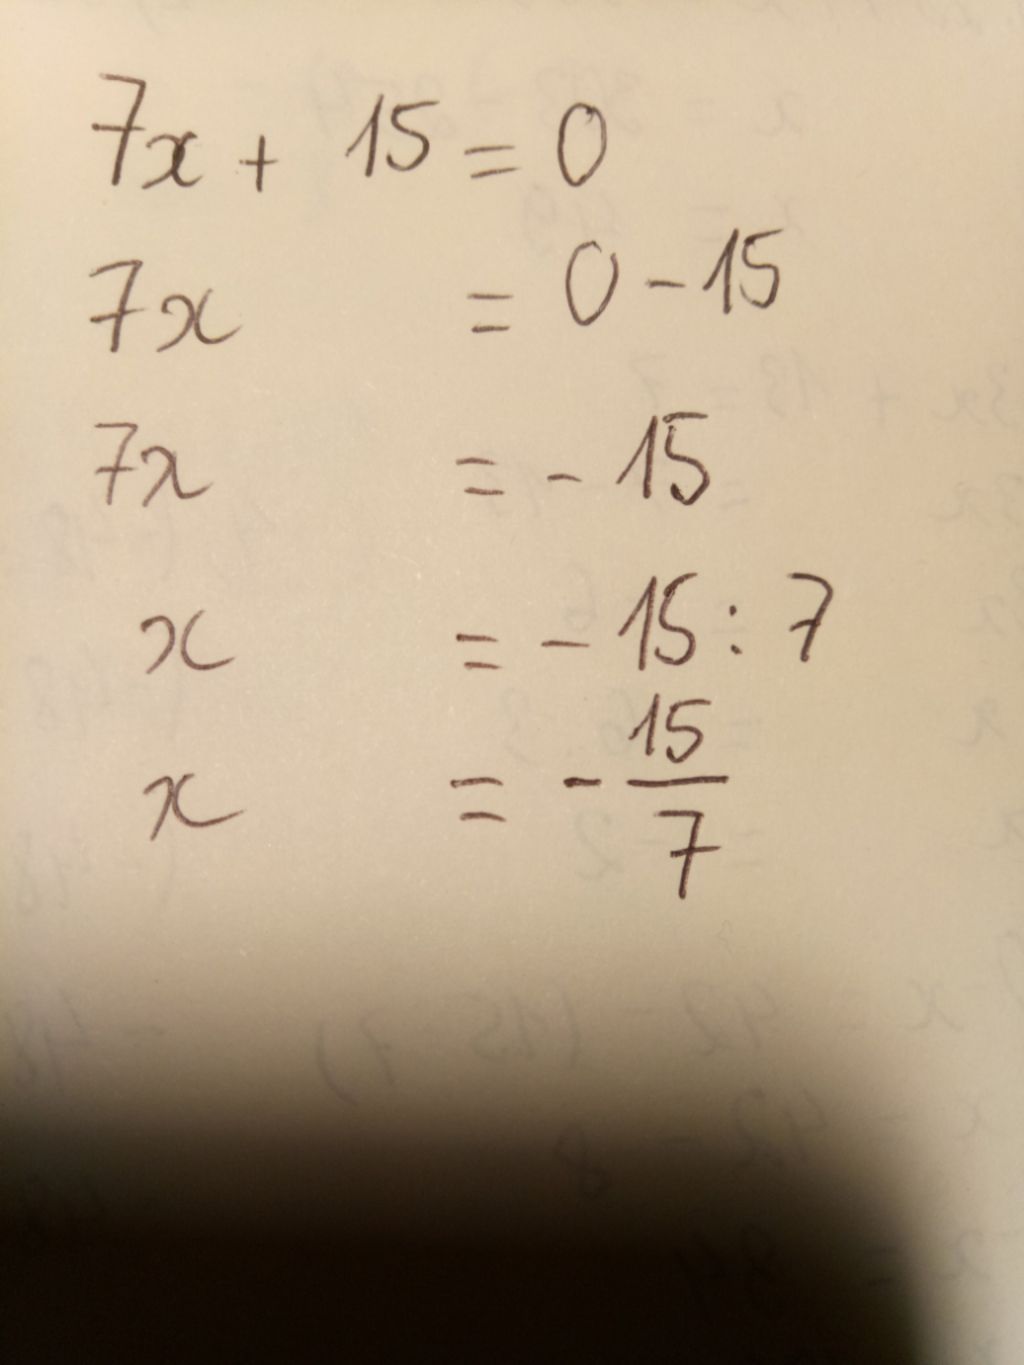 7x + 15 = 0
7x = 0 - 15
7x = - 15
x = - 15 : 7
x = - 15/7